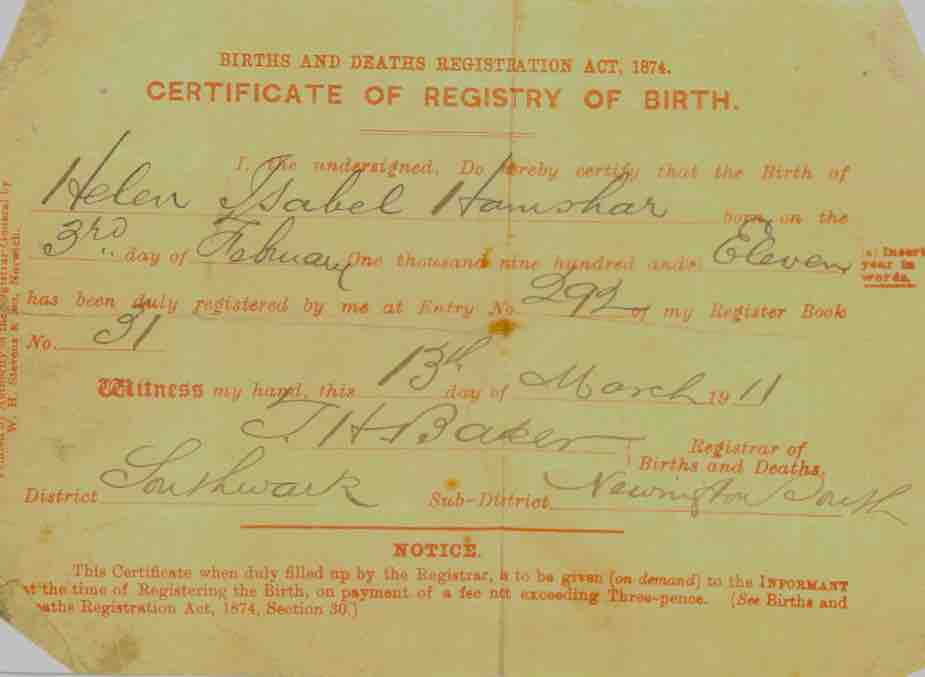 BIRTHS AND DEATHS REGISTRATION ACT, 1874.
CERTIFICATE OF REGISTRY OF BIRTH.
I, the undersigned, Do hereby certify that the Birth of
Helen Isabel Hamshar born on the
3rd day of February One thousand nine hundred and Eleven
(a) Insert year in words.
has been duly registered by me at Entry No. 292 of my Register Book
No. 31
Witness my hand, this 13th day of March 1911
J H Baker
Registrar of
Births and Deaths.
District Southwark Sub-District Newington South
NOTICE.
This Certificate when duly filled up by the Registrar, is to be given (on demand) to the INFORMANT
at the time of Registering the Birth, on payment of a fee not exceeding Three-pence. (See Births and
Deaths Registration Act, 1874, Section 30.)
Printed by Authority of the Registrar General by
W. H. Stevens & Norwich.